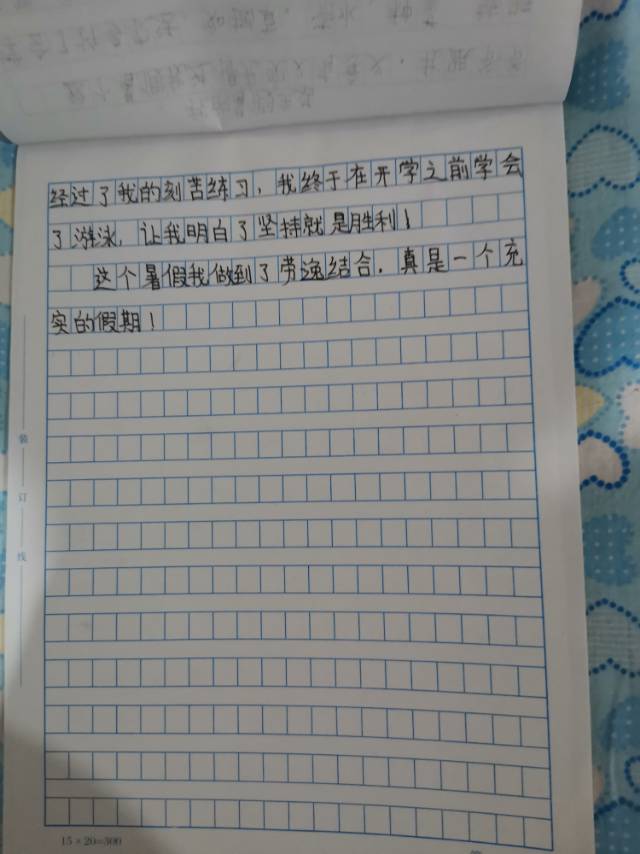 经过了我的刻苦练习，我终于在开学之前学会
了游泳，让我明白了坚持就是胜利！
这个暑假我做到了劳逸结合，真是一个充
实的假期！
装
订
线
15×20=300